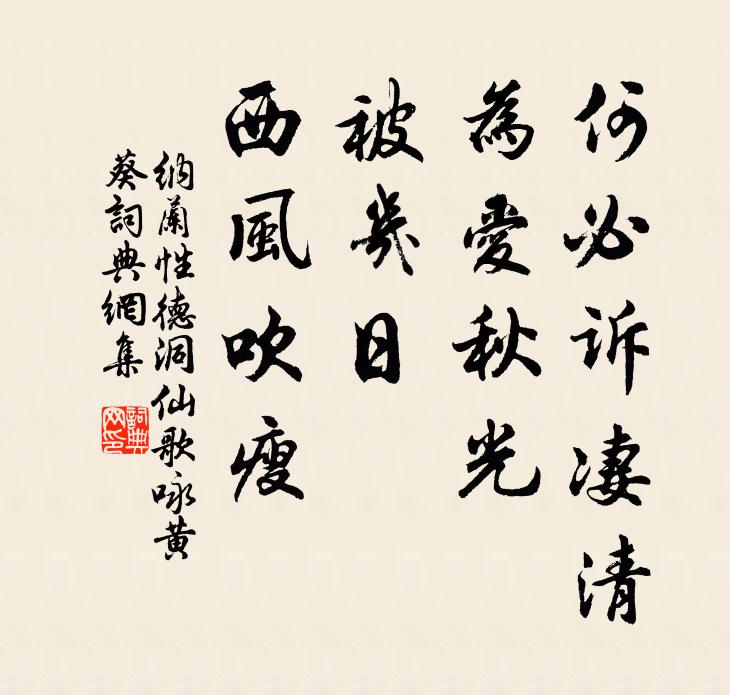 何必訴凄清
為愛秋光
被幾日
西風吹瘦
納蘭性德洞仙歌咏黃
葵詞典網集
詞典
网印